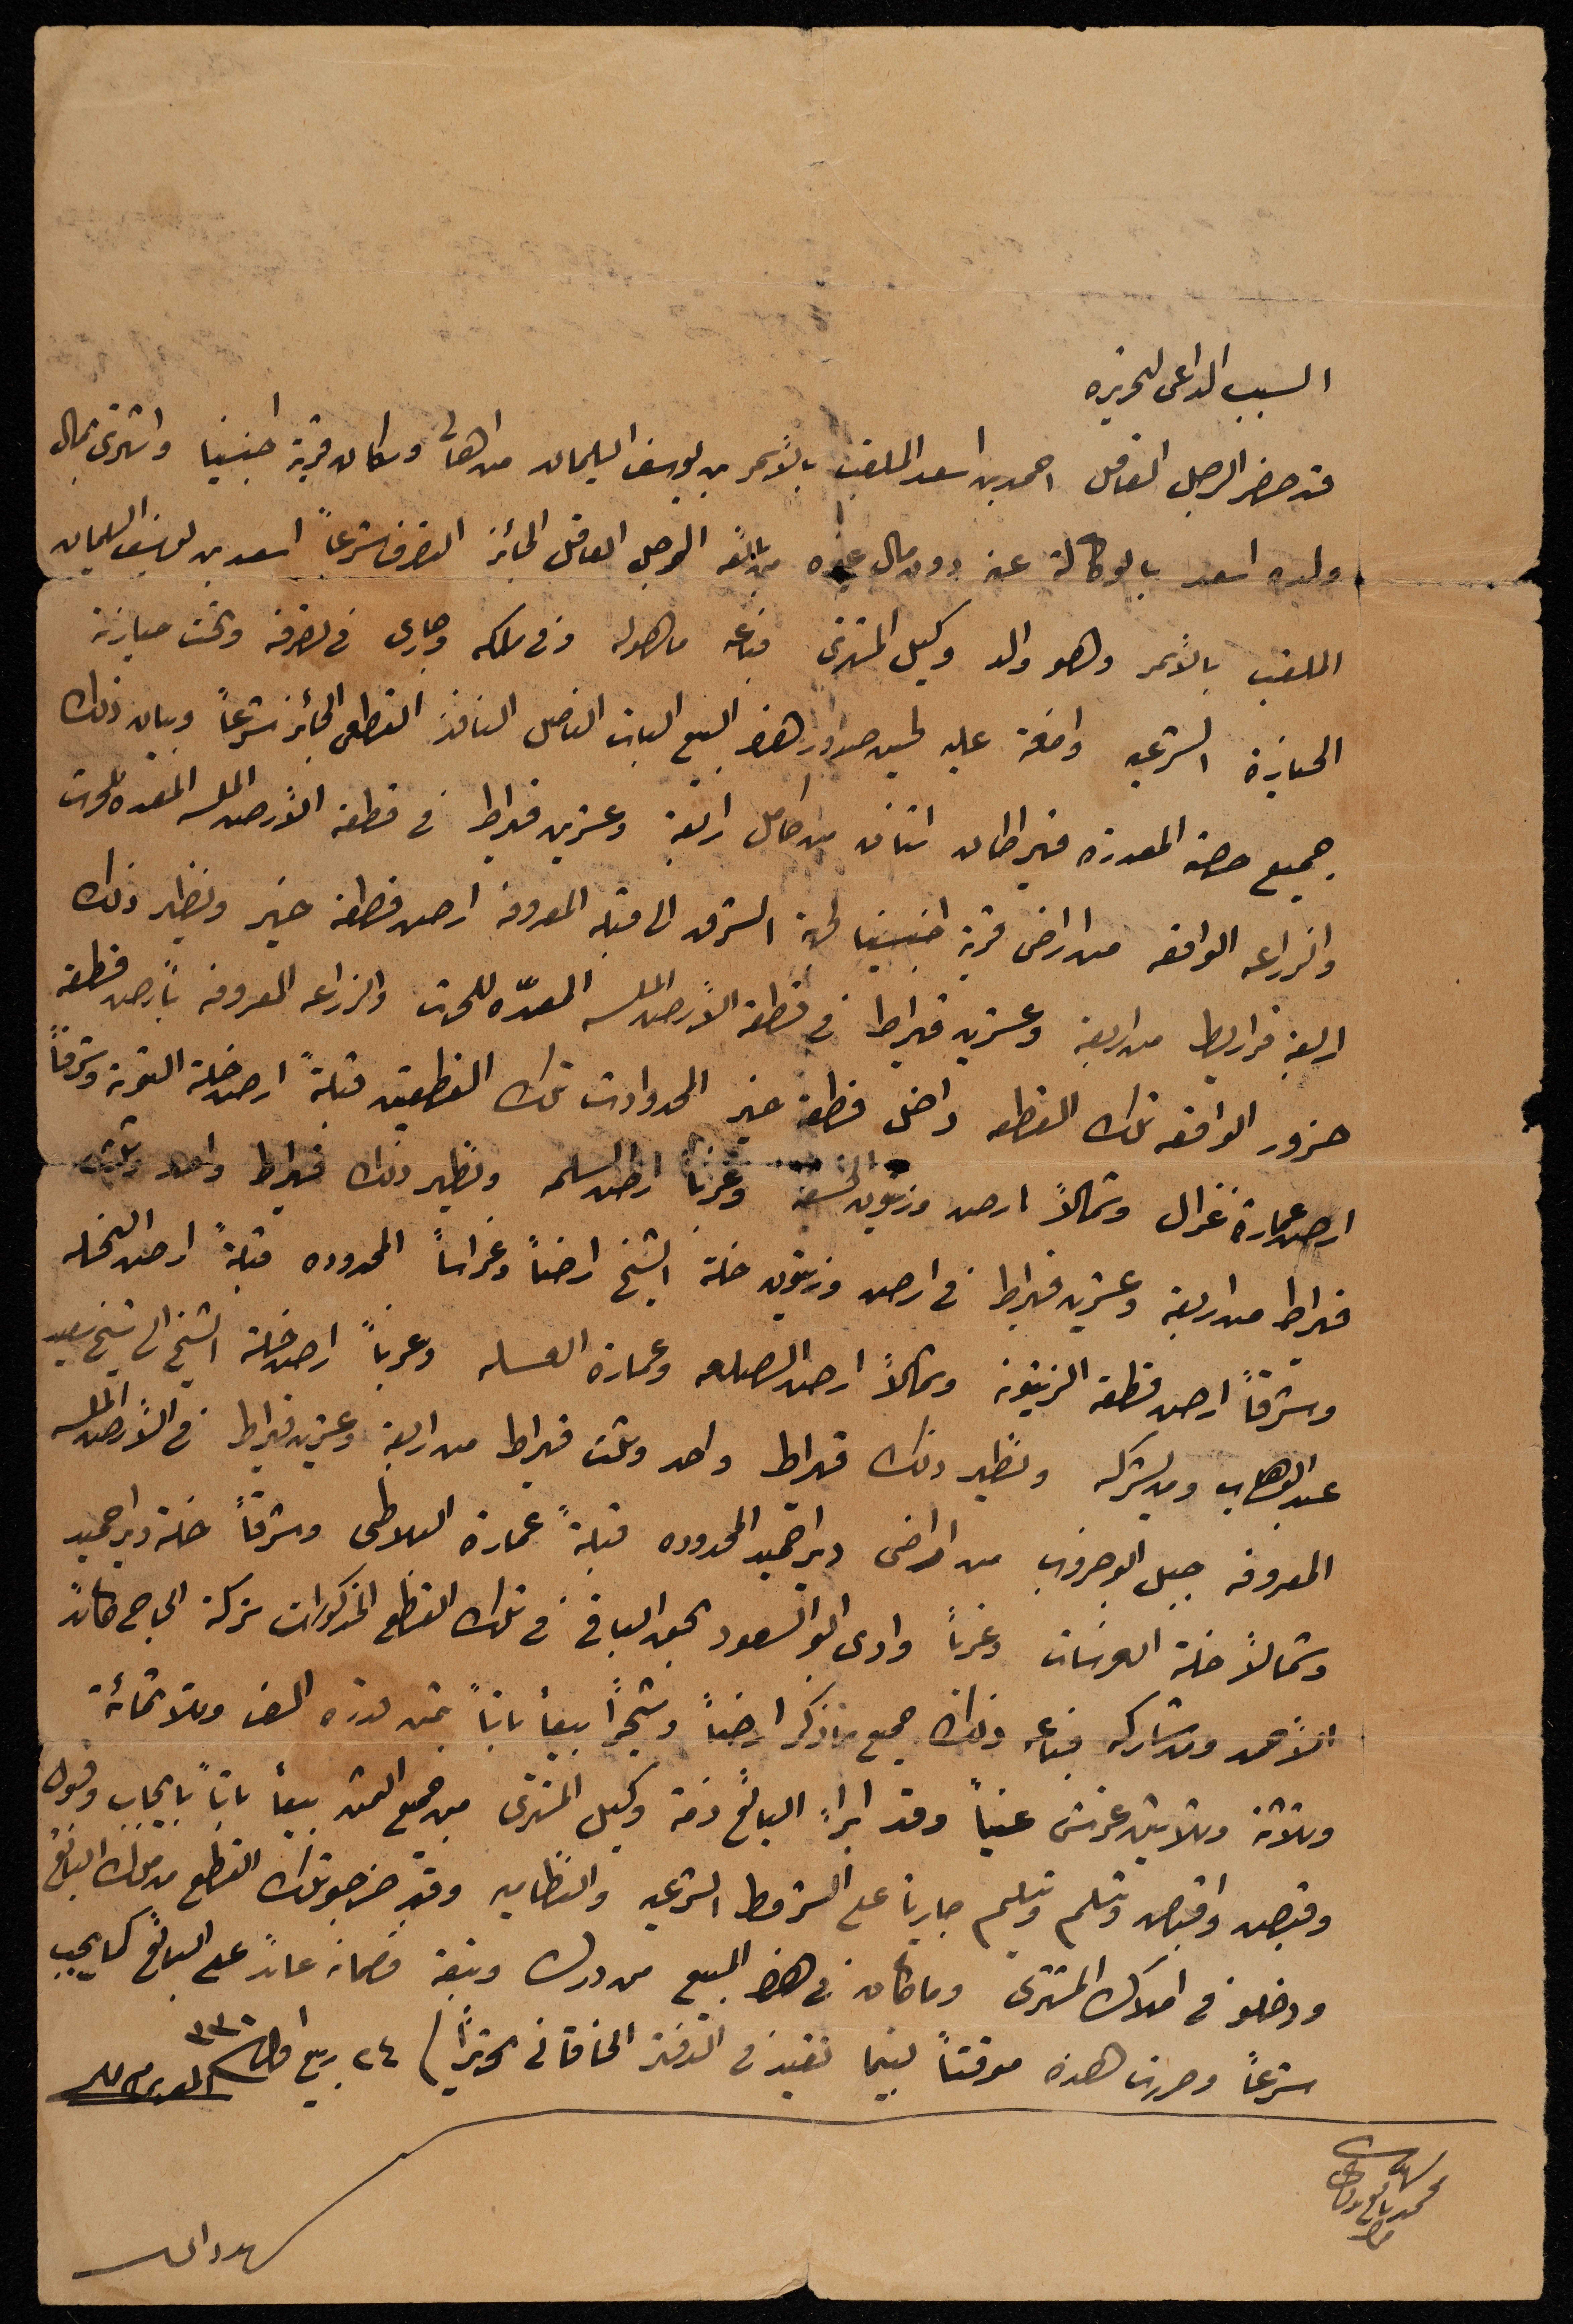 السبب الداعى لتحريره
قد حضر الرجل العاقل احمد بن اسعد الملقب بالأسمر بن يوسف السليمان من اهالى وسكان قرية اجنسنيا واشترى بمال
ولده اسعد بالوكالة عنه دون مال غيره من بائعه الرجل العاقل الجائز التصرف شرعاً اسعد بن يوسف السليمان
الملقب بالأسمر وهو والد وكيل المشترى فباعه ما هو له وفى ملكه وجارى فى تصرفه وتحت حيازته
الحيازة الشرعيه واضعة عليه لحين صدور هذا البيع البات الفاصل النافذ القطعى الجائز شرعاً وبيان ذلك
جميع حصة المعدوده قيراطان اثنان من اصل اربعة وعشرين قيراط فى قطعة الأرض الملسه المعده للحرث
والزراعه الواقعه من اراضى قرية اجنسنيا لجهة الشرق الى قبله المعروفه ارض قطعة خير ونظير ذلك
اربعة قراريط من اربعة وعشرين قيراط فى قطعة الأرض الملسه المعدّه للحرث والزراعه المعروفه بأرض قطعة
حزور الواقعه تلك القطعه داخل قطعة خير المحدودات تلك القطعتين قبلةً ارض خلة القرية وشرقاً
ارض عمارة غزال وشمالاً ارض وزيتون وغرباً ارض السلمه ونظير ذلك قيراط واحد وثلث
قيراط من اربعة وعشرين قيراط فى ارض وزيتون خلة الشيخ ارضاً وغراساً المحدوده قبلةً ارض النخله
وشرقاً ارض قطعة الزيتونه وشمالاً ارض الصلعه وعمارة العسله وغرباً ارض خلة الشيخ الى شيخ سعيد
عبد الوهاب ومن يشركه ونظير ذلك قيراط واحد وثلث قيراط من اربعة وعشرين قيراط فى الأرض الملسه
المعروفه جبل ابو خروب من اراضى دير احميد المحدوده قبلةً عمارة البلاطى وشرقاً خلة دير احميد
وشمالاً خلة العرسات وغرباً وادى ابو السعود بحق الباقى فى تلك القطع المذكورات شركة الحاج
الأحمد ومن شاركه فباعه ذلك جميع ما ذكر ارضاً وشجراً بيعاً باتاً بثمن قدره الف وثلاثمائة
وثلاثة وثلاثين غرش عيناً وقد ابراء البائع ذمة وكيل المشترى من جميع الثمن بيعاً باتاً بايجاب وقبول
وقبض واقباض وتسلم وتسليم جارياً على الشروط الشرعيه والنظاميه وقد خرجو تلك القطع من ملك البائع
ودخلو فى املاك المشترى وما كان فى هذا المبيع من درك وتبعة فضمانه عائد على البائع كما يجب
شرعاً وحررت هذه موقتاً لبينما تقيد فى الدفتر الخاقانى تحريراً ٢٤ ربيع اول ٣٣٠
شهود الحال